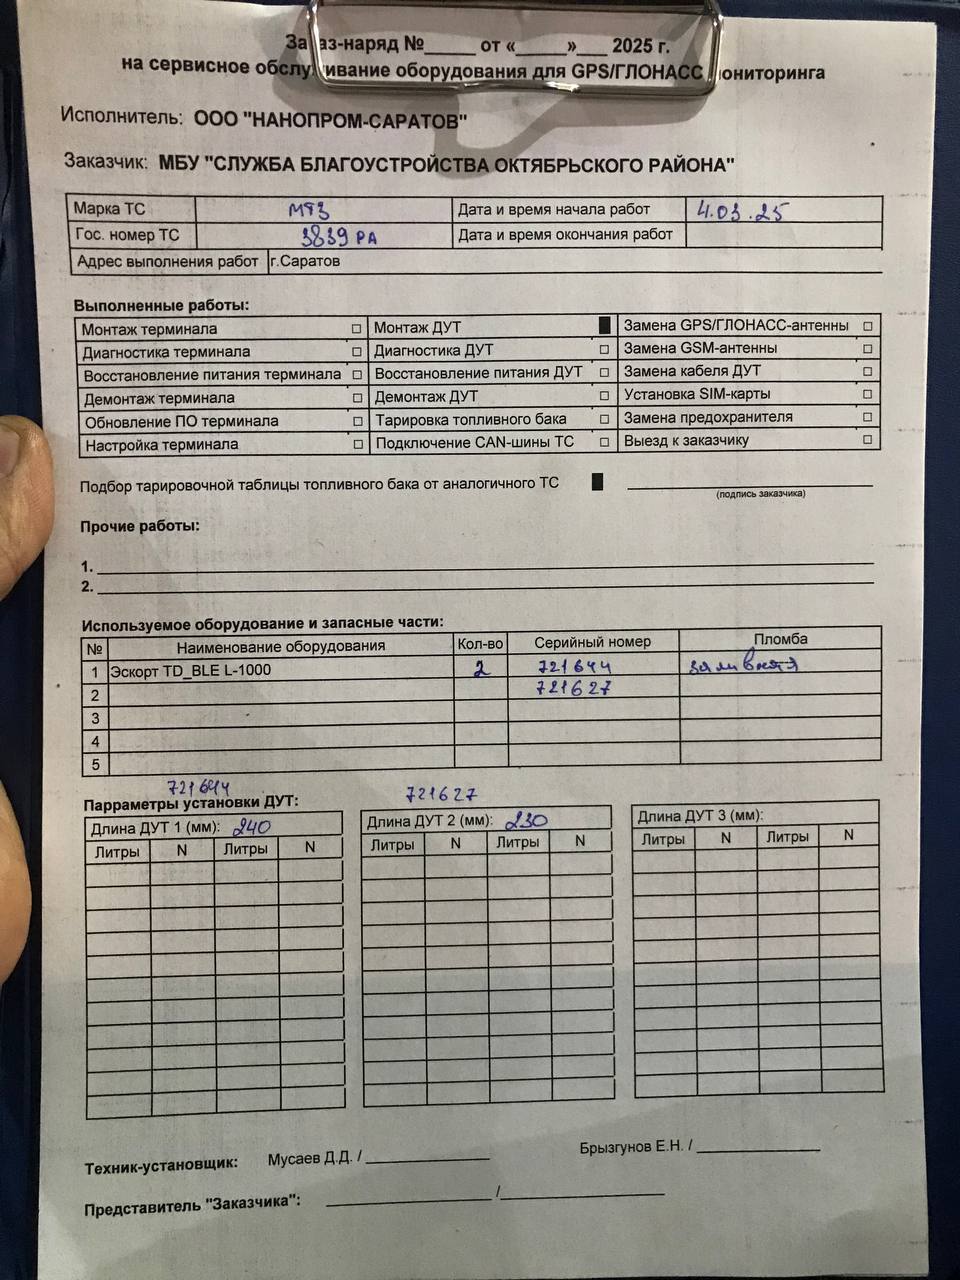 Заказ-наряд №_____ от «_____»___ 2025 г.
на сервисное обслуживание оборудования для GPS/ГЛОНАСС мониторинга
Исполнитель: ООО "НАНОПРОМ-САРАТОВ"
Заказчик: МБУ "СЛУЖБА БЛАГОУСТРОЙСТВА ОКТЯБРЬСКОГО РАЙОНА"
Марка ТС МТЗ Дата и время начала работ 4.03.25
Гос. номер ТС 3839 РА Дата и время окончания работ
Адрес выполнения работ г.Саратов
Выполненные работы:
Монтаж терминала □ Монтаж ДУТ ■ Замена GPS/ГЛОНАСС-антенны □
Диагностика терминала □ Диагностика ДУТ □ Замена GSM-антенны □
Восстановление питания терминала □ Восстановление питания ДУТ □ Замена кабеля ДУТ □
Демонтаж терминала □ Демонтаж ДУТ □ Установка SIM-карты □
Обновление ПО терминала □ Тарировка топливного бака □ Замена предохранителя □
Настройка терминала □ Подключение CAN-шины ТС □ Выезд к заказчику □
Подбор тарировочной таблицы топливного бака от аналогичного ТС ■
(подпись заказчика)
Прочие работы:
1.
2.
Используемое оборудование и запасные части:
№ Наименование оборудования Кол-во Серийный номер Пломба
1 Эскорт TD_BLE L-1000 2 721644 заливная
2 721627
3
4
5
721644 721627
Парраметры установки ДУТ:
Длина ДУТ 1 (мм): 240 Длина ДУТ 2 (мм): 230 Длина ДУТ 3 (мм):
Литры N Литры N Литры N Литры N Литры N Литры N
Техник-установщик: Мусаев Д.Д. / Брызгунов Е.Н. /
Представитель "Заказчика": /